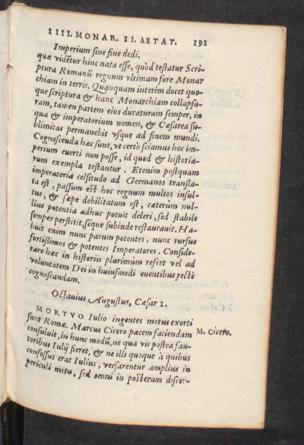 IIII. MONAR. II. AETAT. 191
Imperium sine fine dedi.
quæ videtur hinc nata esse, quòd testatur Scri-
ptura Romanū regnum vltimam fore Monar
chiam in terris. Quanquam interim docet quo-
que scriptura & hanc Monarchiam collapsu-
ram, tamen partem eius duraturam semper, in
qua & imperatorium nomen, & Cæsarea su-
blimitas permanebit vsque ad finem mundi.
Cognoscenda hæc sunt, vt certò sciamus hoc im-
perium euerti non posse, id quod & historia-
rum exempla testantur. Etenim postquam
imperatoria celsitudo ad Germanos transla-
ta est, passum est hoc regnum multos insul-
tus, & sæpe debilitatum est, cæterùm nul-
lius potentia adhuc potuit deleri, sed stabile
semper perstitit, séque subinde restaurauit. Ha-
buit enim nunc parum potentes, nunc rursus
fortissimos & potentes Imperatores. Conside-
rare hæc in historiis plurimùm refert vel ad
voluntatem Dei in huiusmodi euentibus rectè
cognoscendam.
Octauius Augustus, Cæsar 2.
MORTVO Iulio ingentes motus exorti
sunt Romæ. Marcus Cicero pacem faciendam
M. Cicero.
consuluit, in hunc modū, ne qua vis postea fau-
toribus Iulij fieret, & ne illi quoque à quibus
confossus erat Iulius, versarentur amplius in
periculi metu, sed omni in posterum discor-